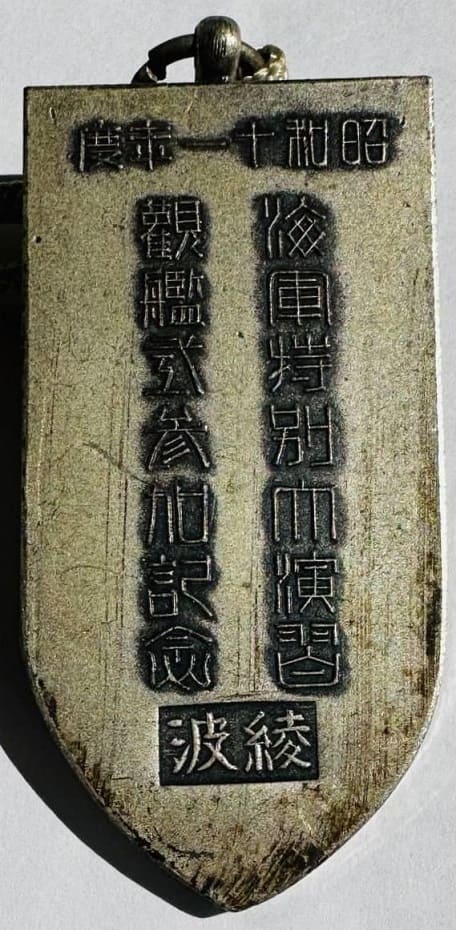 昭和十一年度
海軍特別大演習
觀艦式参加記念
綾波